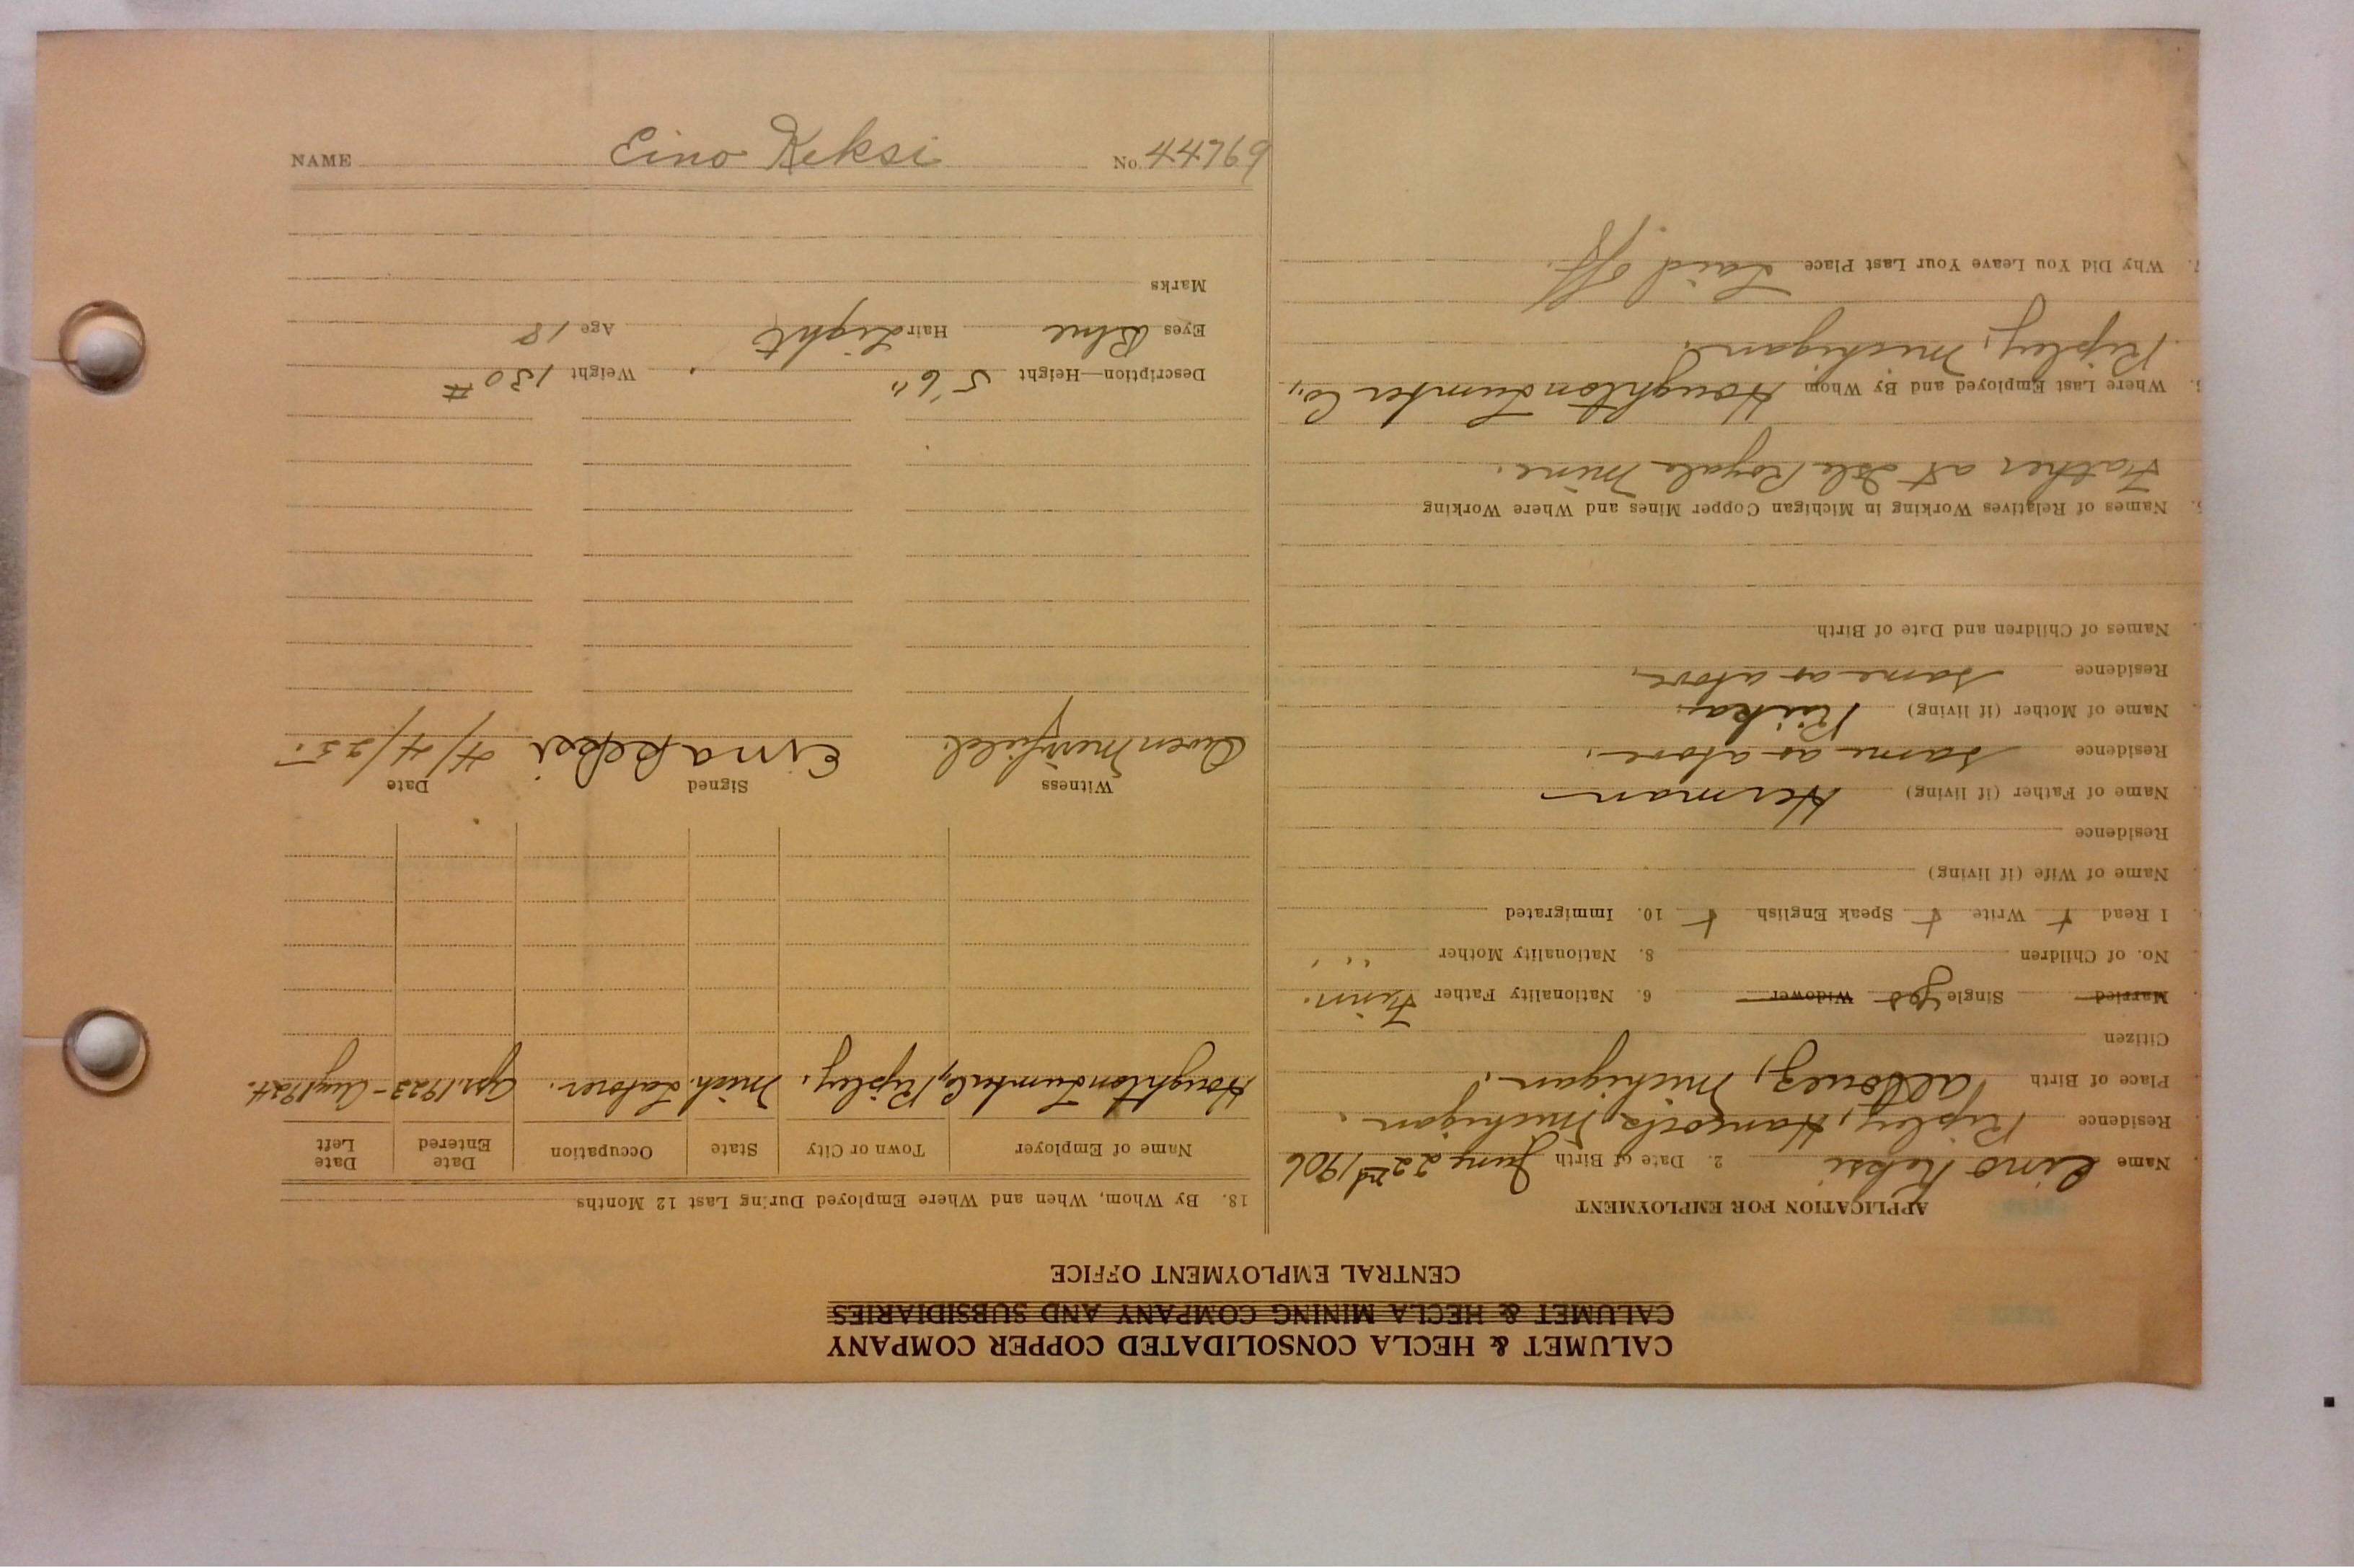 CALUMET & HECLA CONSOLIDATED COPPER COMPANY
CALUMET & HECLA MINING COMPANY AND SUBSIDIARIES
CENTRAL EMPLOYMENT OFFICE
APPLICATION FOR EMPLOYMENT
Name Eino Keksi 2. Date of Birth 22nd 1906
Residence Ripley, Hancock, Michigan.
Place of Birth Allouez, Michigan.
Citizen
Married Single yes Widower 6. Nationality Father Finn.
No. of Children 8. Nationality Mother " "
I Read + Write + Speak English + 10. Immigrated
Name of Wife (if living)
Residence
Name of Father (if living) Herman
Residence same as above.
Name of Mother (if living) Riika.
Residence same as above.
Names of Children and Date of Birth
Names of Relatives Working in Michigan Copper Mines and Where Working
Father at Isle Royale Mine.
Where Last Employed and By Whom Houghton Lumber Co.,
Ripley, Michigan.
7. Why Did You Leave Your Last Place Laid off.
18. By Whom, When and Where Employed During Last 12 Months
Name of Employer Town or City State Occupation Date Entered Date Left
Houghton Lumber Co, Ripley, Mich. Laborer. Apr. 1923 - Aug 1924.
Witness Signed Date
Owen Eino Keksi 4/4/25
Description—Height 5' 6" Weight 130#
Eyes Blue Hair Light Age 18
Marks
NAME Eino Keksi No. 44769